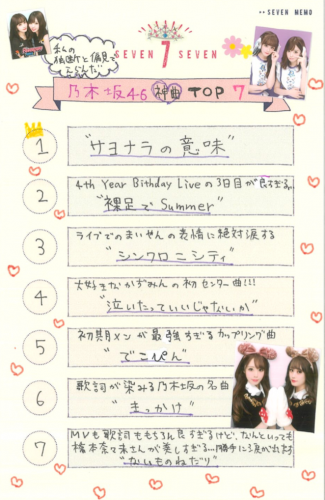 •• SEVEN MEMO
私の
独断と偏見で
えらんだ
SEVEN 7 SEVEN
乃木坂46 神曲 TOP 7
1
"サヨナラの意味"
2
4th Year Birthday Liveの3日目が良すぎる。
"裸足でSummer"
3
ライブでのまいやんの表情に絶対涙する
"シンクロニシティ"
4
大好きなかずみんの初センター曲!!!
"泣いたっていいじゃないか"
5
初期メンが最強すぎるカップリング曲
"でこぴん"
6
歌詞が染みる乃木坂の名曲
"きっかけ"
7
MVも歌詞ももちろん良すぎるけど、なんといっても
橋本奈々未さんが美しすぎる...勝手に涙が出ます
"ないものねだり"